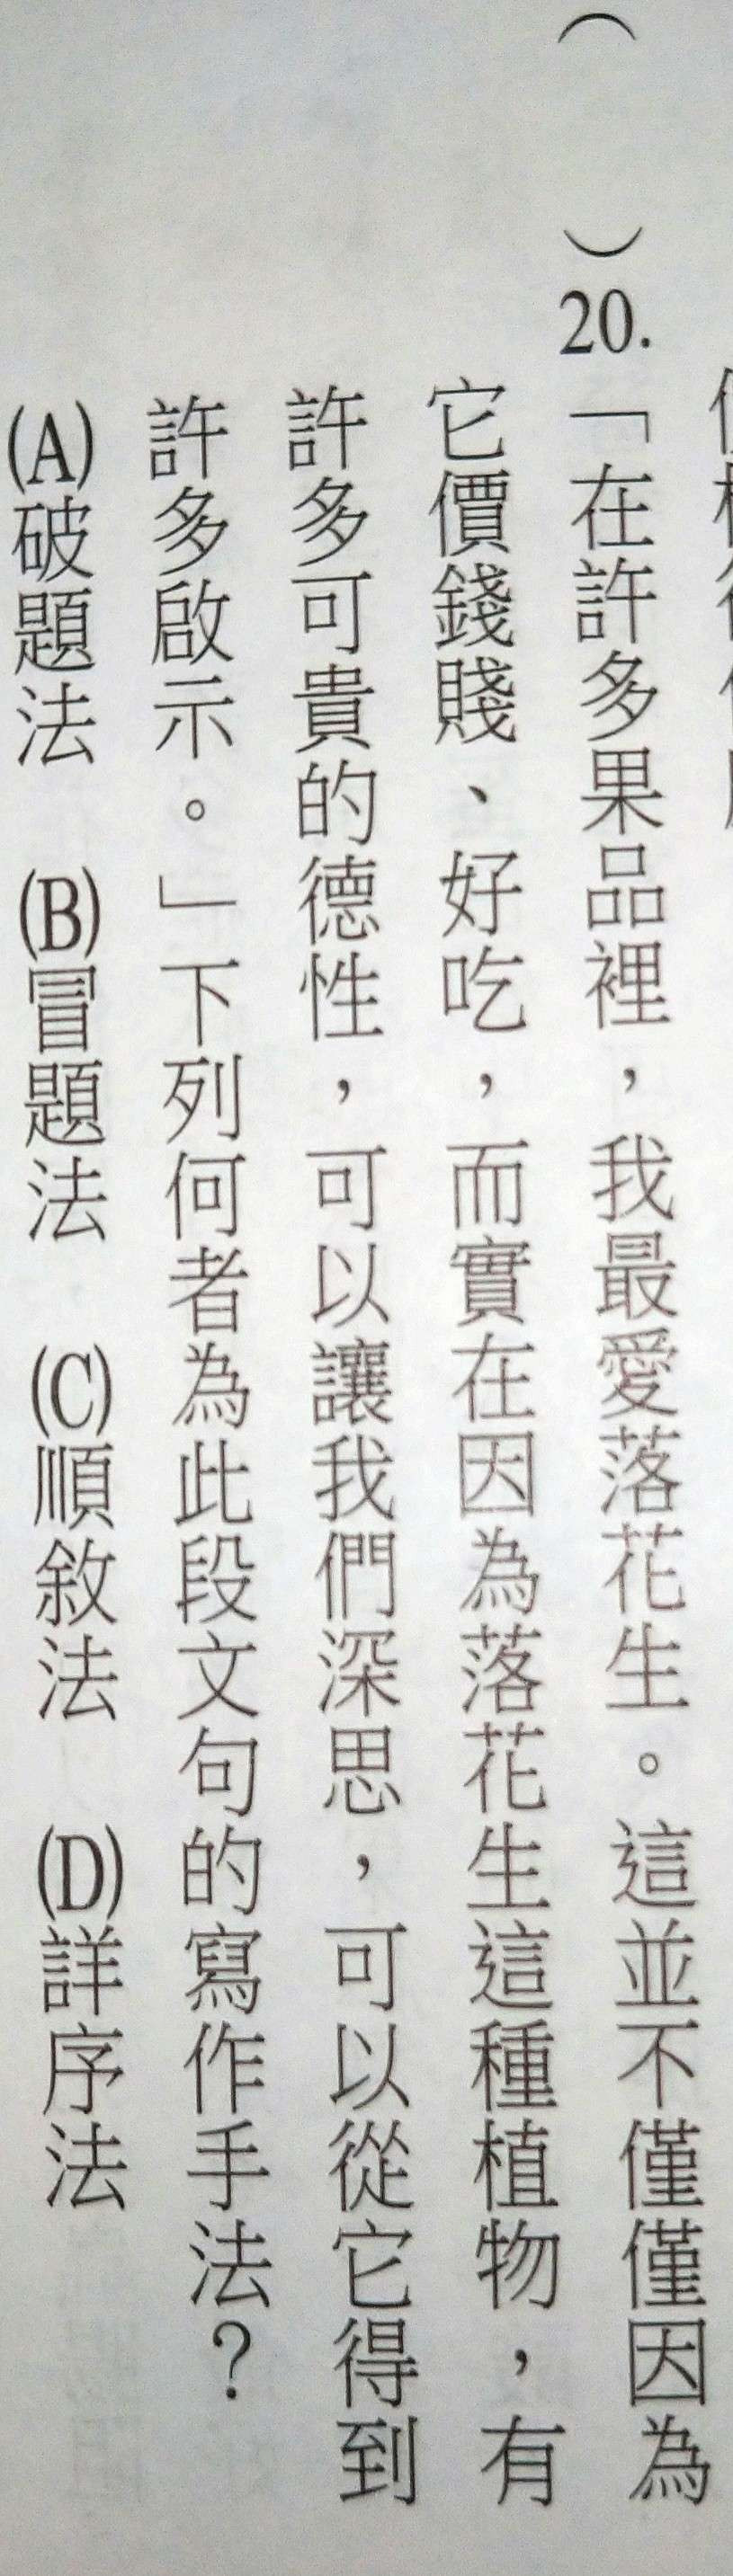 （　　）20.「在許多果品裡，我最愛落花生。這並不僅僅因為
它價錢賤、好吃，而實在因為落花生這種植物，有
許多可貴的德性，可以讓我們深思，可以從它得到
許多啟示。」下列何者為此段文句的寫作手法？
(A)破題法　(B)冒題法　(C)順敘法　(D)詳序法